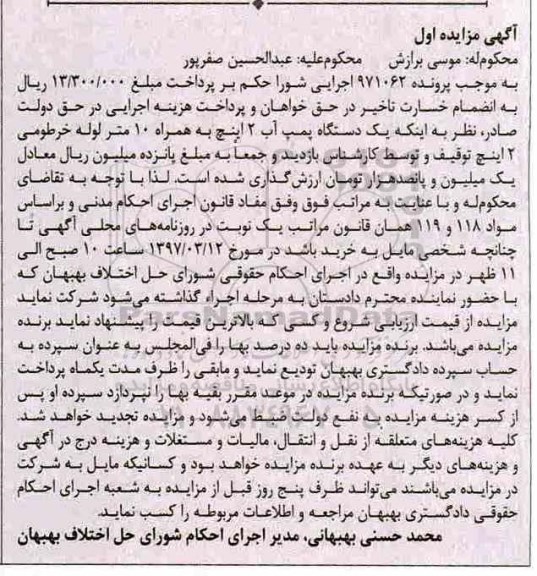 آگهی مزایده اول
محکوم‌له: موسی برازش محکوم‌علیه: عبدالحسین صفرپور
به موجب پرونده ۹۷۱۰۶۲ اجرایی شورا حکم بر پرداخت مبلغ ۱۳/۳۰۰/۰۰۰ ریال
به انضمام خسارت تاخیر در حق خواهان و پرداخت هزینه اجرایی در حق دولت
صادر، نظر به اینکه یک دستگاه پمپ آب ۲ اینچ به همراه ۱۰ متر لوله خرطومی
۲ اینچ توقیف و توسط کارشناس بازدید و جمعاً به مبلغ پانزده میلیون ریال معادل
یک میلیون و پانصدهزار تومان ارزش‌گذاری شده است. لذا با توجه به تقاضای
محکوم‌له و با عنایت به مراتب فوق وفق مفاد قانون اجرای احکام مدنی و براساس
مواد ۱۱۸ و ۱۱۹ همان قانون مراتب یک نوبت در روزنامه‌های محلی آگهی تا
چنانچه شخصی مایل به خرید باشد در مورخ ۱۳۹۷/۰۳/۱۲ ساعت ۱۰ صبح الی
۱۱ ظهر در مزایده واقع در اجرای احکام حقوقی شورای حل اختلاف بهبهان که
با حضور نماینده محترم دادستان به مرحله اجراء گذاشته می‌شود شرکت نماید
مزایده از قیمت ارزیابی شروع و کسی که بالاترین قیمت را پیشنهاد نماید برنده
مزایده می‌باشد. برنده مزایده باید ده درصد بها را فی‌المجلس به عنوان سپرده به
حساب سپرده دادگستری بهبهان تودیع نماید و مابقی را ظرف مدت یکماه پرداخت
نماید و در صورتیکه برنده مزایده در موعد مقرر بقیه بها را نپردازد سپرده او پس
از کسر هزینه مزایده به نفع دولت ضبط می‌شود و مزایده تجدید خواهد شد.
کلیه هزینه‌های متعلقه از نقل و انتقال، مالیات و مستغلات و هزینه درج در آگهی
و هزینه‌های دیگر به عهده برنده مزایده خواهد بود و کسانیکه مایل به شرکت
در مزایده می‌باشند می‌تواند ظرف پنج روز قبل از مزایده به شعبه اجرای احکام
حقوقی دادگستری بهبهان مراجعه و اطلاعات مربوطه را کسب نماید.
محمد حسنی بهبهانی، مدیر اجرای احکام شورای حل اختلاف بهبهان
ParsNamadData